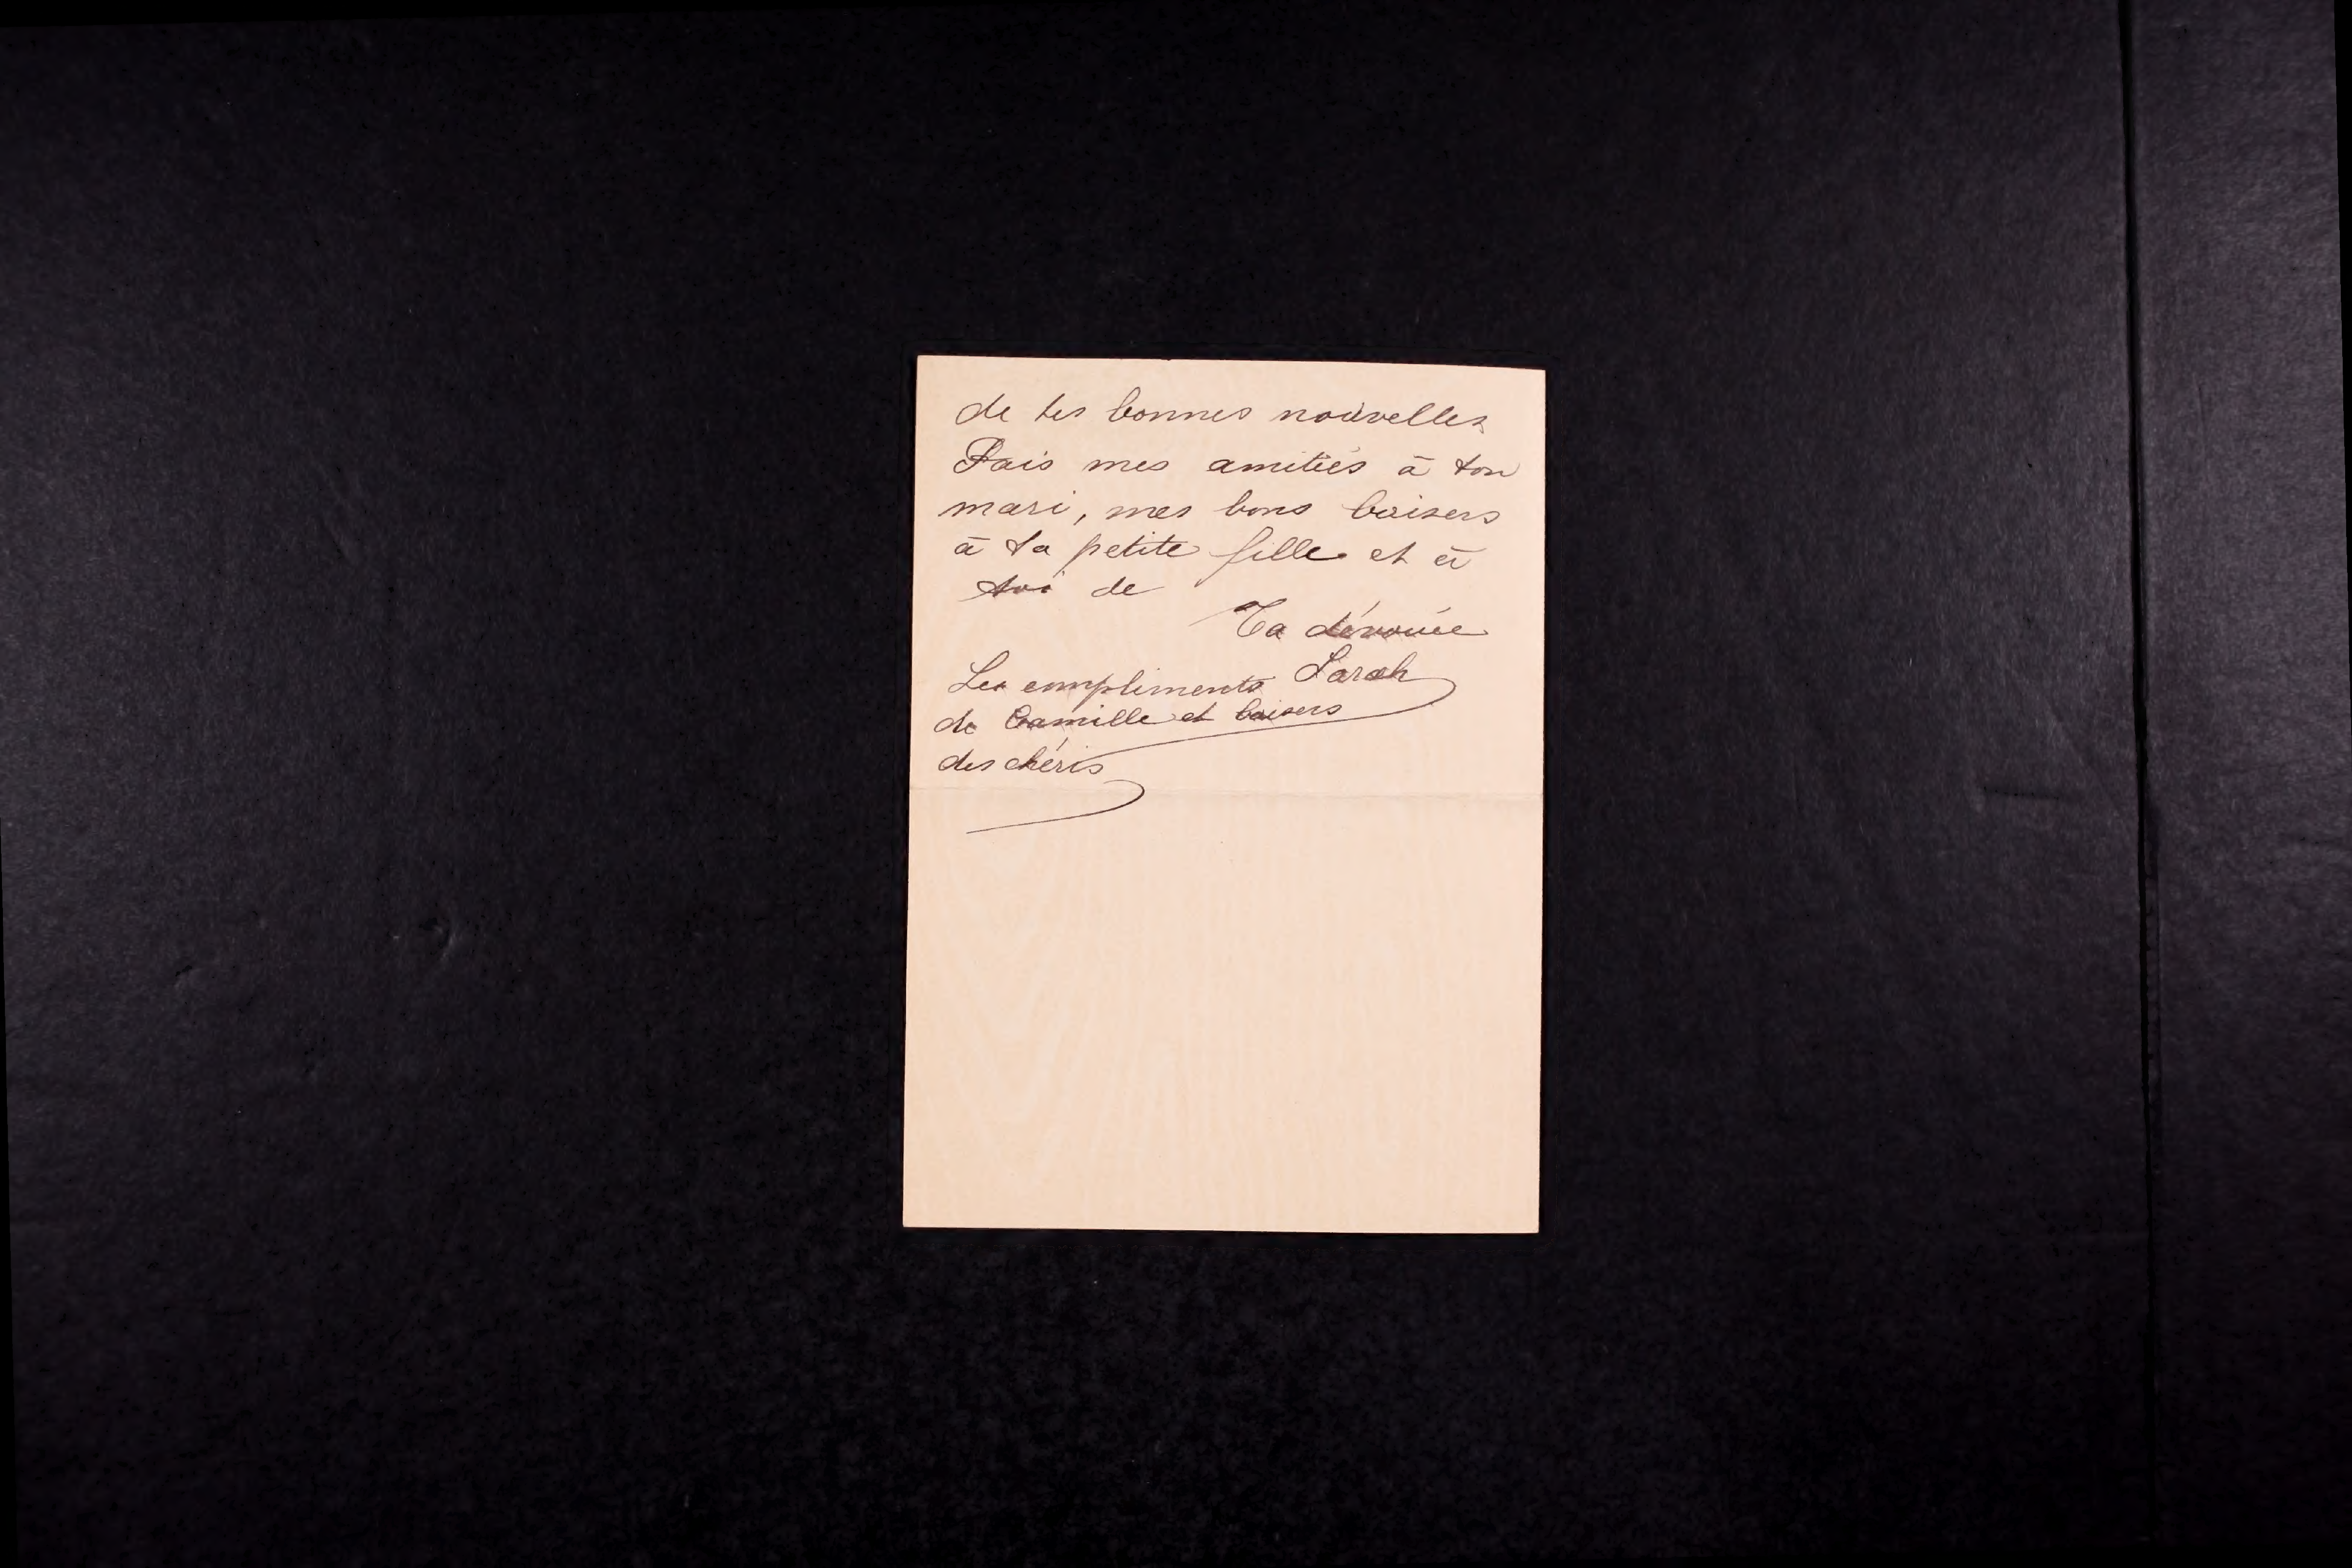 de tes bonnes nouvelles
Fais mes amitiés à ton
mari, mes bons baisers
à ta petite fille et à
toi de
Ta dévouée
Sarah
Les compliments
de Camille et baisers
des chéris